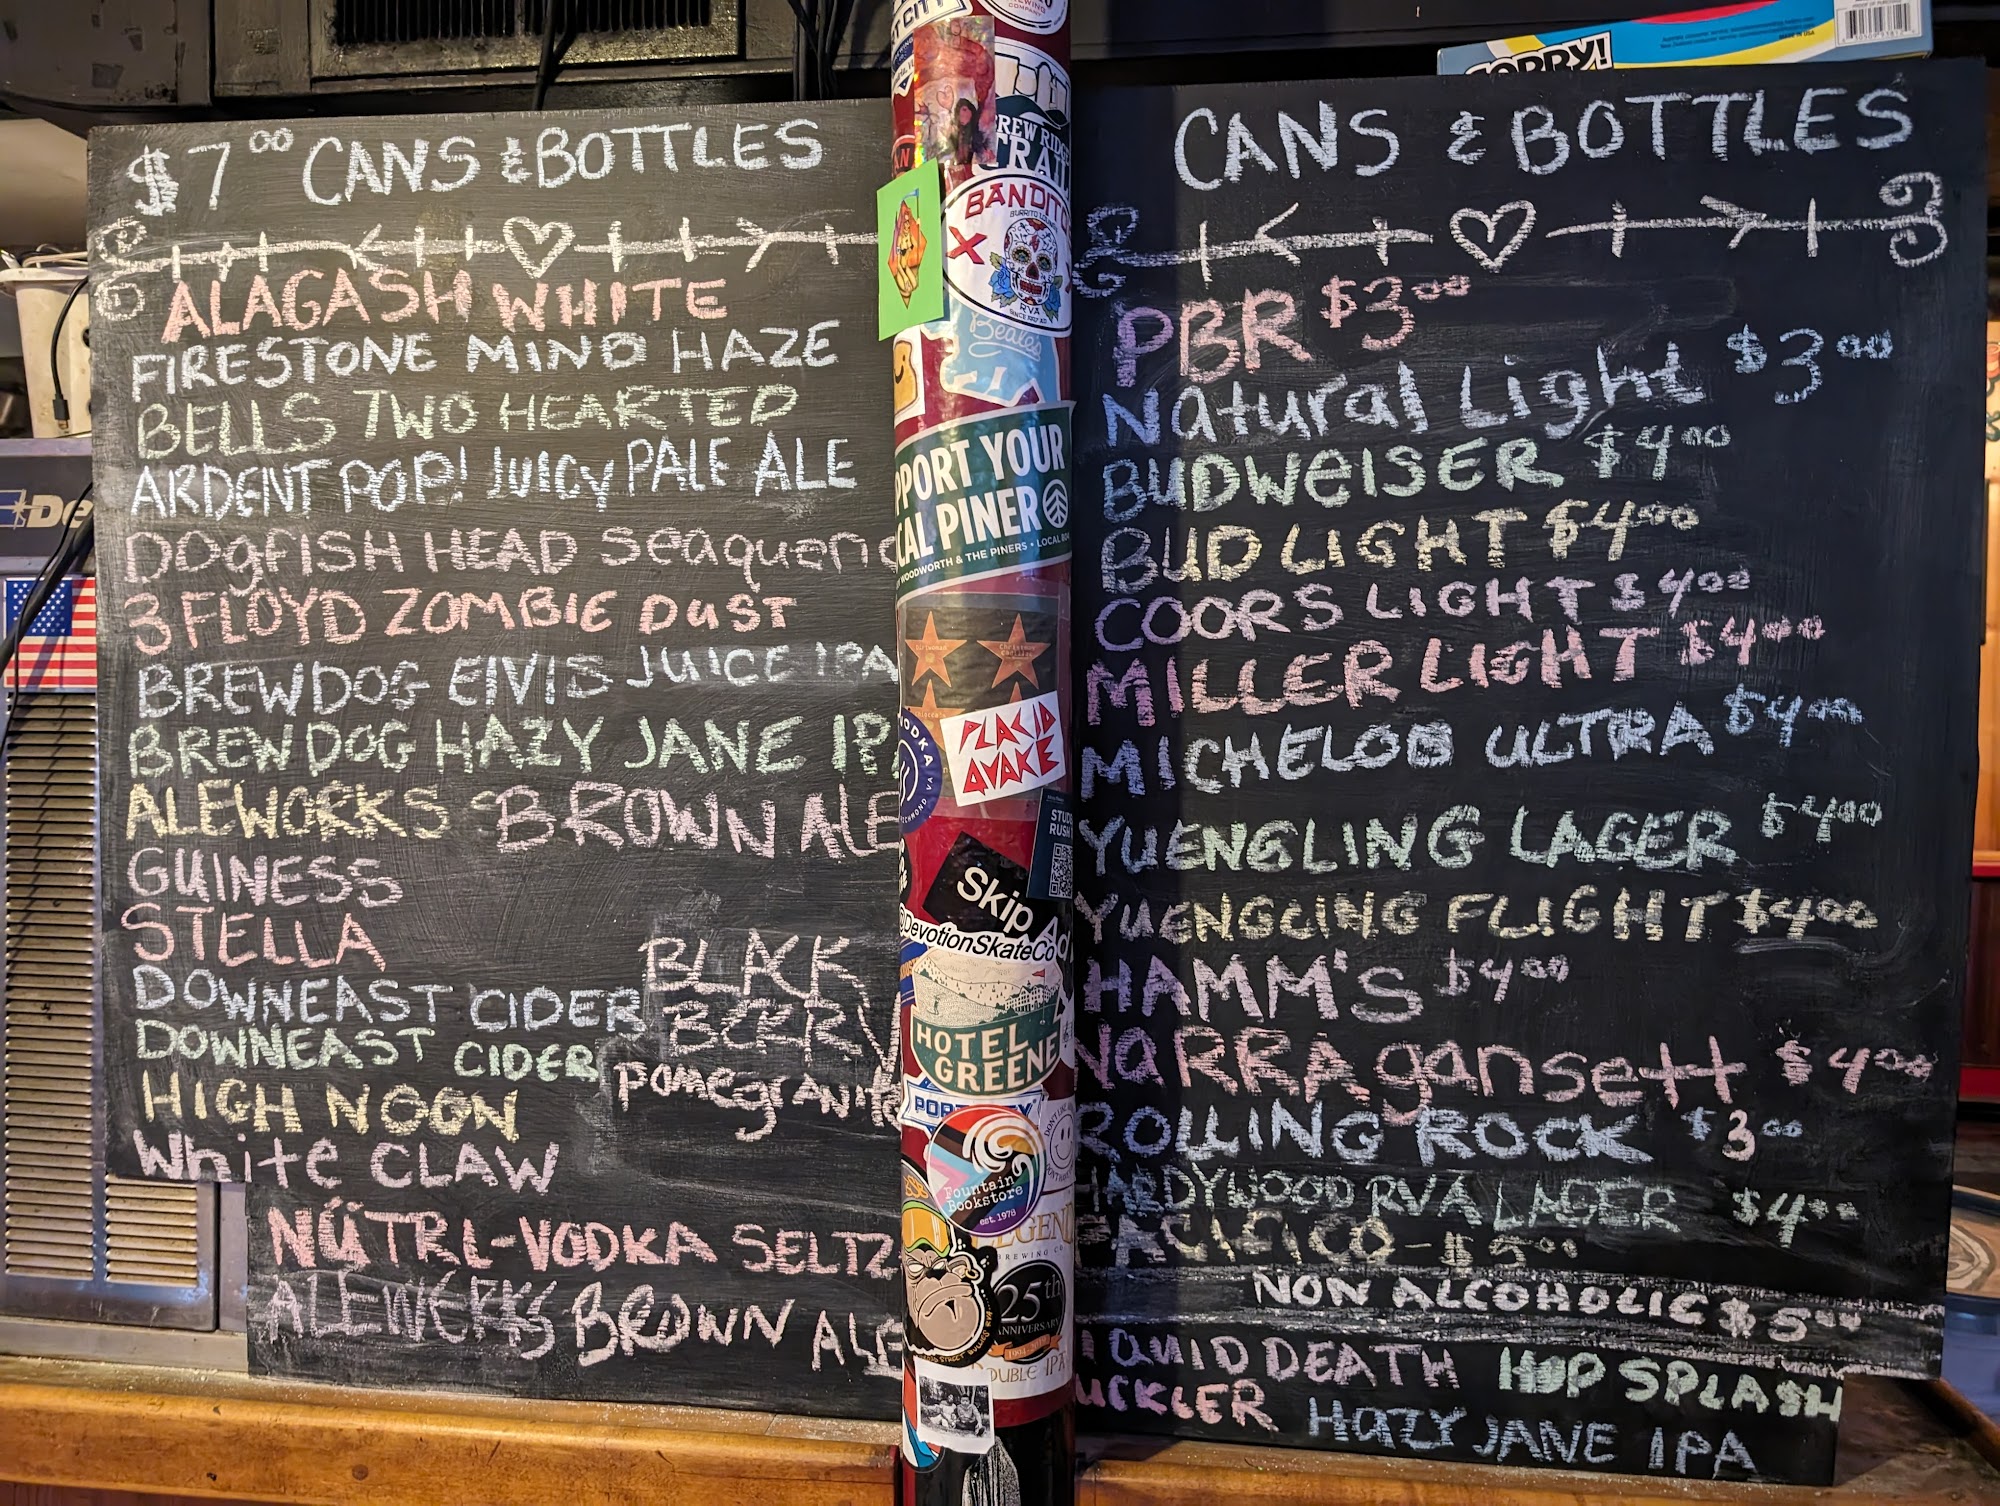 $7.00 CANS & BOTTLES
ALAGASH WHITE
FIRESTONE MIND HAZE
BELLS TWO HEARTED
ARDENT POP! JUICY PALE ALE
DOGFISH HEAD Seaquenc
3 FLOYD ZOMBIE DUST
BREWDOG ElVIS JUICE IPA
BREWDOG HAZY JANE IP
ALEWORKS BROWN ALE
GUINESS
STELLA
DOWNEAST CIDER BLACK BERRY
DOWNEAST CIDER POMEGRANITE
HIGH NOON
White CLAW
NÜTRL-VODKA SELTZ
ALEWERKS BROWN ALE
CITY
BREW RIDGE
TRAIL
BANDITO
BURRITO LOU
X
RVA
SINCE 1997 AD
Beales
PPORT YOUR
CAL PINER
WOODWORTH & THE PINERS • LOCAL 804
VODKA
RICHMOND VA
PLACID
QUAKE
STUDE
RUSH
Skip Ad
@DevotionSkateCo
HOTEL
GREENE
Fountain
Bookstore
est. 1978
LEGEND
BREWING CO
25th
ANNIVERSARY
DOUBLE IPA
SORRY!
MADE IN USA
CANS & BOTTLES
PBR $3.00
Natural Light $3.00
BUDWEISER $4.00
BUD LIGHT $4.00
COORS LIGHT $4.00
MILLER LIGHT $4.00
MICHELOB ULTRA $4.00
YUENGLING LAGER $4.00
YUENGLING FLIGHT $4.00
HAMM'S $4.00
NARRAgansett $4.00
ROLLING ROCK $3.00
HARDYWOOD RVA LAGER $4.00
PACIFICO - $5.00
NON ALCOHOLIC $5.00
IQUID DEATH HOP SPLASH
UCKLER HAZY JANE IPA